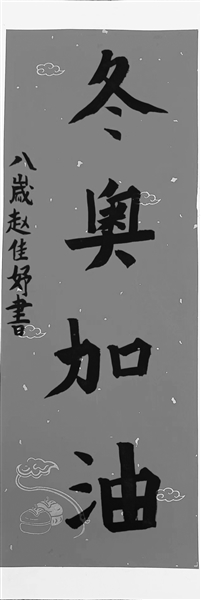 冬奥加油
八歲赵佳妤書